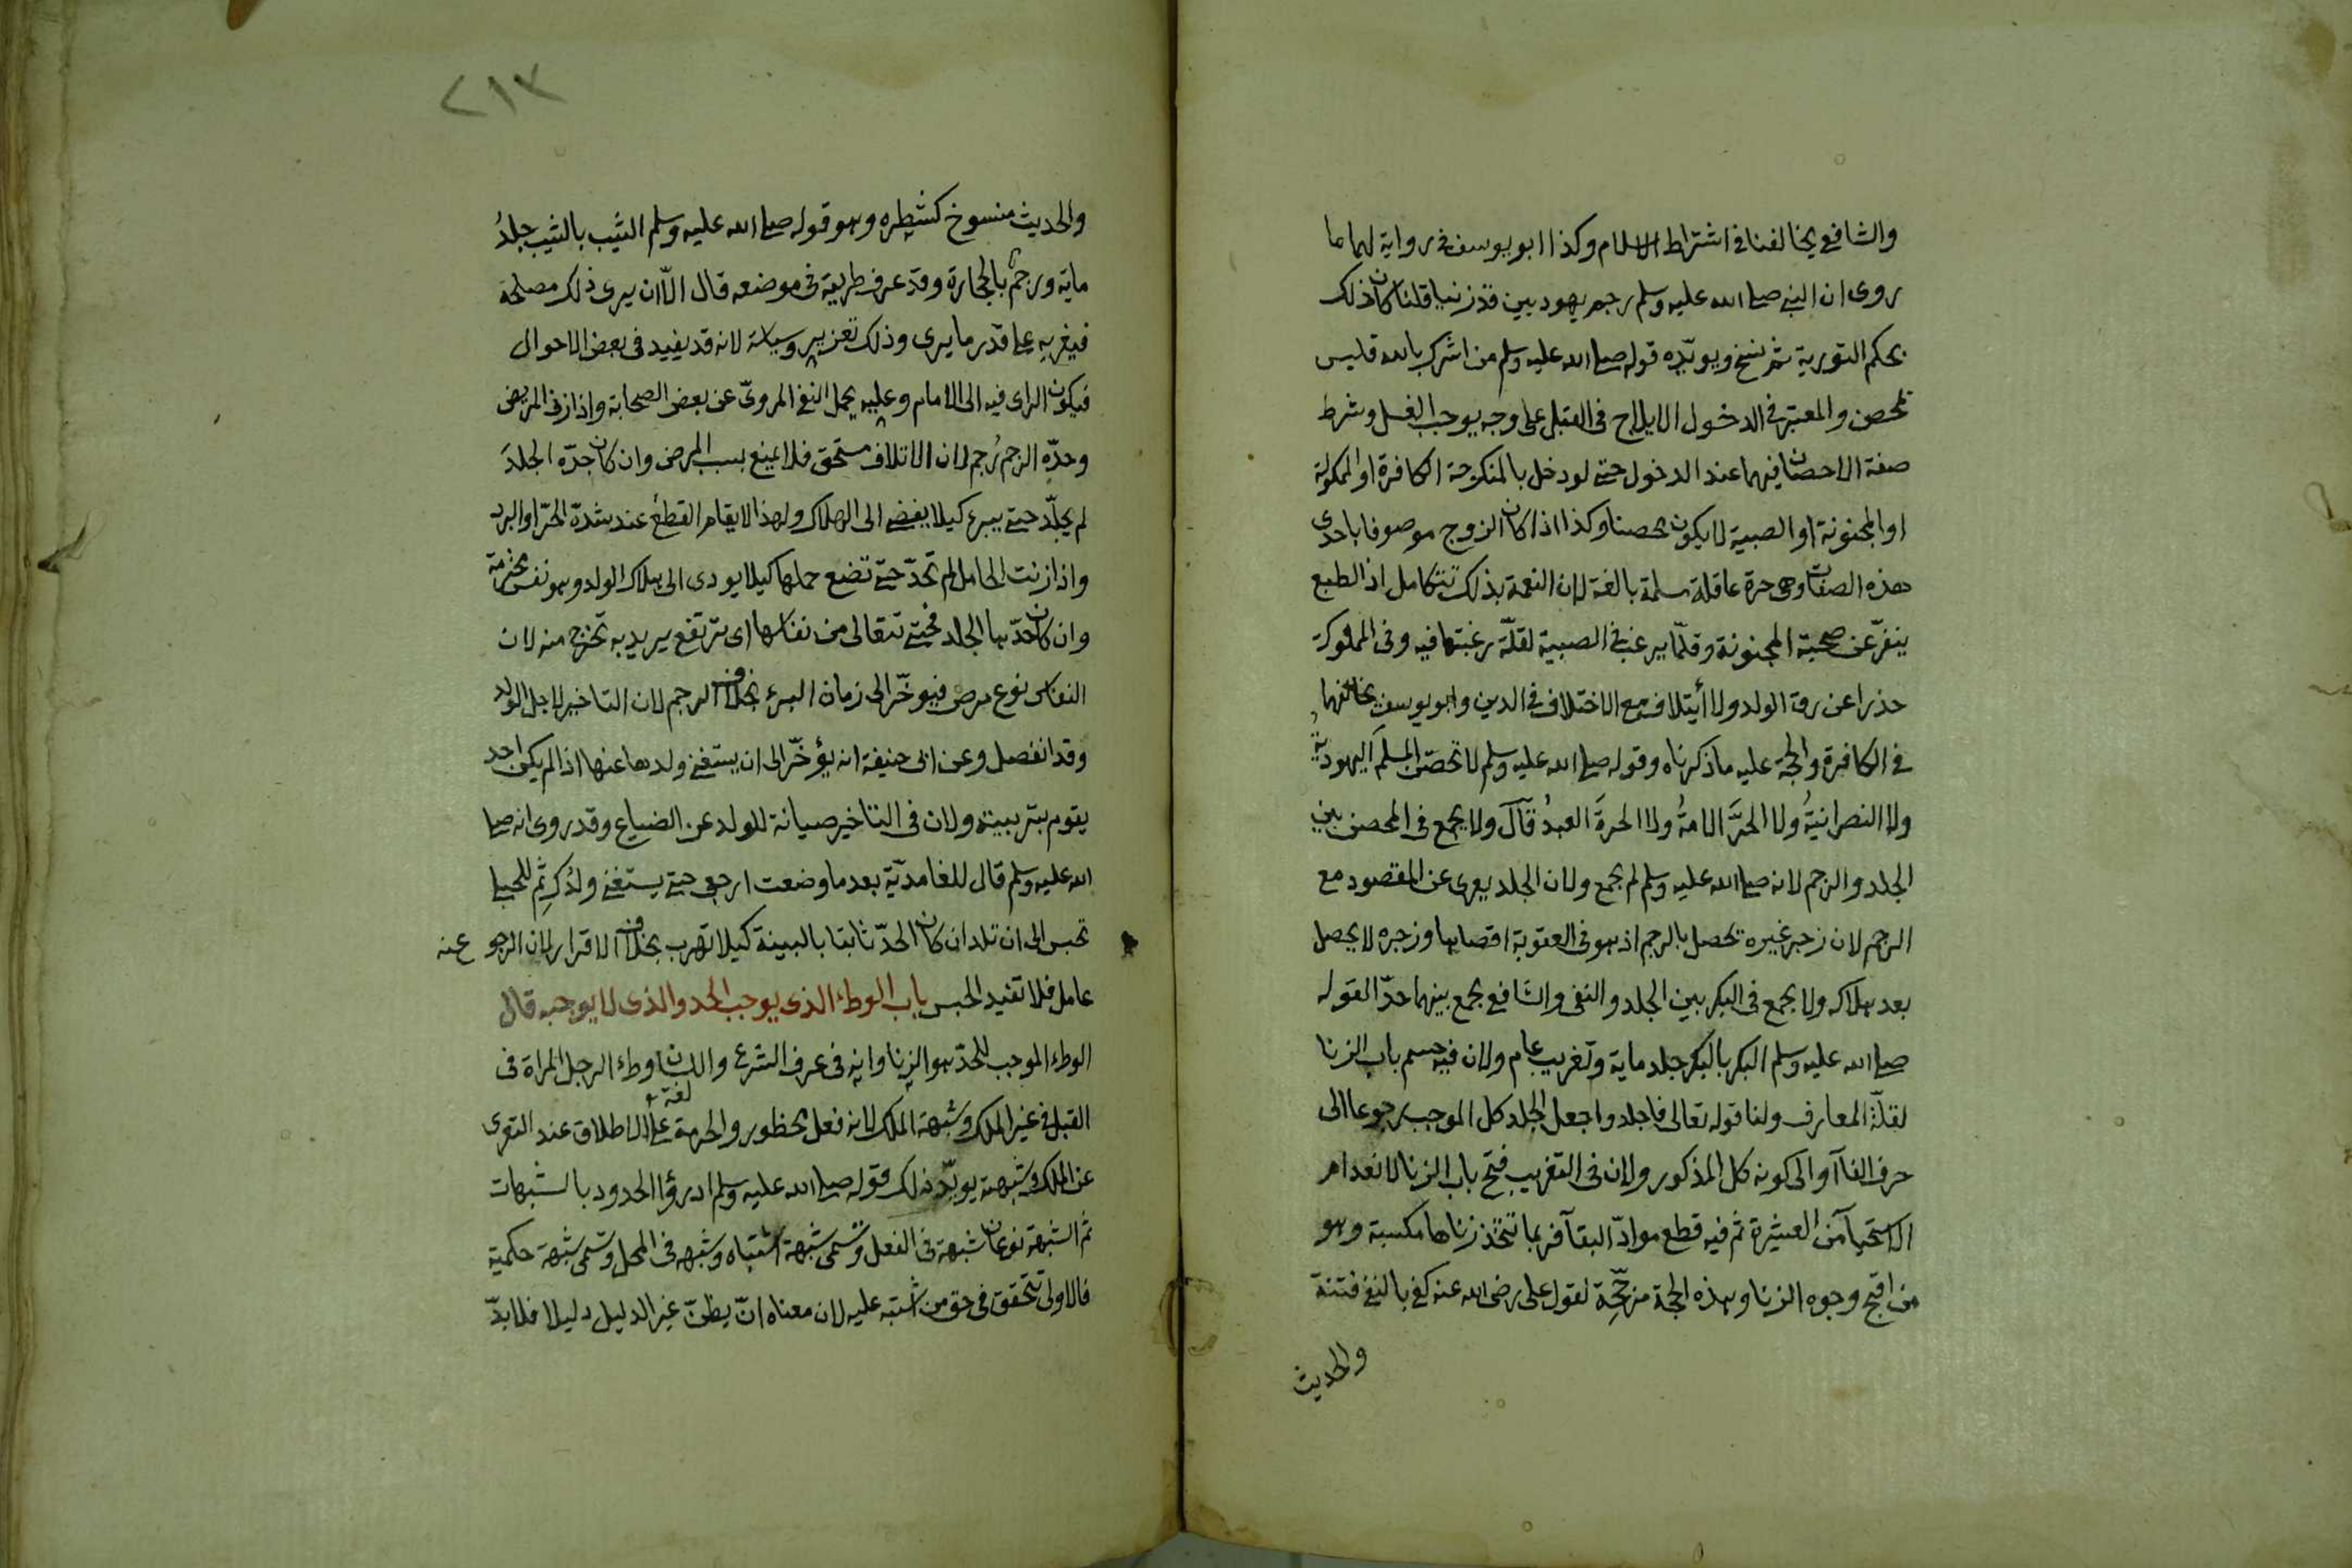 والشافعي يخالفنا في اشتراط الاسلام وكذا ابو يوسف في رواية لهما ما
روى ان النبي صلى الله عليه وسلم رجم يهوديين قد زنيا قلنا كان ذلك
بحكم التورية ثم نسخ ويويّده قوله صلى الله عليه وسلم من اشرك بالله فليس
بمحصن والمعتبر في الدخول الايلاج في القبل على وجه يوجب الغسل وشرط
صفة الاحصان فيهما عند الدخول حتى لو دخل بالمنكوحة الكافرة او المملوكة
او المجنونة او الصبية لا يكون محصنا وكذا اذا كان الزوج موصوفا باحدى
هذه الصفات وهي حرة عاقلة مسلمة بالغة لان النعمة بذلك تتكامل اذ الطبع
ينفرّ عن صحبة المجنونة وقلّما يرغب في الصبية لقلّة رغبتها فيه وفي المملوكة
حذرا عن رق الولد ولا أيتلاف مع الاختلاف في الدين وابو يوسف يخالفهما
في الكافرة والحجة عليه ما ذكرناه وقوله صلى الله عليه وسلم لا تحصن المسلمَ اليهوديةُ
ولا النصرانيةُ ولا الحرَّ الامةُ ولا الحرةَ العبدُ قال ولا يجمع في المحصن بين
الجلد والرجم لانه صلى الله عليه وسلم لم يجمع ولان الجلد يعرى عن المقصود مع
الرجم لان زجر غيره تحصل بالرجم اذ هو في العقوبة اقصاها وزجره لا يحصل
بعد هلاكه ولا يجمع في البكر بين الجلد والنفي والشافعي يجمع بينهما حدّا لقوله
صلى الله عليه وسلم البكر بالبكر جلد ماية وتغريب عام ولان فيه حسم باب الزنا
لقلّة المعارف ولنا قوله تعالى فاجلدوا جعل الجلد كل الموجب رجوعا الى
حرف الفآ او الى كونه كل المذكور ولان في التغريب فتح باب الزنا لانعدام
الاستحيآ من العشيرة ثم فيه قطع موادّ البقآ فربما تتخذ زناها مكسبة وهو
من اقبح وجوه الزنا وهذه الحجة مرجّحة لقول علي رضى الله عنه كفى بالنفي فتنة
والحديث
٢١٣
والحديث منسوخ كشطره وهو قوله صلى الله عليه وسلم الثيب بالثيب جلدُ
ماية ورجمٌ بالحجارة وقد عرف طريقه في موضعه قال الّا ان يرى ذلك مصلحة
فيغربه على قدر ما يرى وذلك تعزير وسياسة لانه قد يفيد في بعض الاحوال
فيكون الراى فيه الى الامام وعليه يحمل النفي المروىّ عن بعض الصحابة واذا زنى المريض
وحدّه الرجم رُجم لان الاتلاف مستحق فلا يمنع بسبب المرض وان كان حدّه الجلدَ
لم يجلّد حتى يبرء كيلا يفضى الى الهلاك ولهذا لا يقام القطع عند شدّة الحرّ او البرد
واذا زنت الحامل لم تحدّ حتى تضع حملها كيلا يودى الى هلاك الولد وهو نفس محترمة
وان كان حدّها الجلد فحتى تتعالى من نفاسها اى ترتفع يريد به تخرج منه لان
النفاس نوع مرض فيوخّر الى زمان البرء بخلاف الرجم لان التاخير لاجل الولد
وقد انفصل وعن ابى حنيفة انه يؤخّر الى ان يستغنى ولدها عنها اذا لم يكن احد
يقوم بتربيته ولان في التاخير صيانة للولد عن الضياع وقد روى انه صلى
الله عليه وسلم قال للغامديّة بعد ما وضعت ارجعى حتى يستغنى ولدُكِ ثم الحبلى
تحبس الى ان تلد ان كان الحدّ ثابتا بالبينة كيلا تهرب بخلاف الاقرار لان الرجوع عنه
عامل فلا تفيد الحبس باب الوطء الذى يوجب الحد والذى لا يوجبه قال
الوطء الموجب للحدّ هو الزنا وانه في عرف الشرع واللسان وطء الرجل المراة في
القبل في غير الملك وشبهة الملك لانه فعل محظور والحرمة على الاطلاق عند التعرى
لغة
عن الملك وشبهته يويّد ذلك قوله صلى الله عليه وسلم ادرؤا الحدود بالشبهات
ثم الشبهة نوعان شبهة في الفعل وتسمى شبهة اشتباه وشبهه في المحل وتسمى شبهة حكمية
فالاولى تتحقق في حق من اشتبه عليه لان معناه ان يظنّ غير الدليل دليلا فلا بدّ